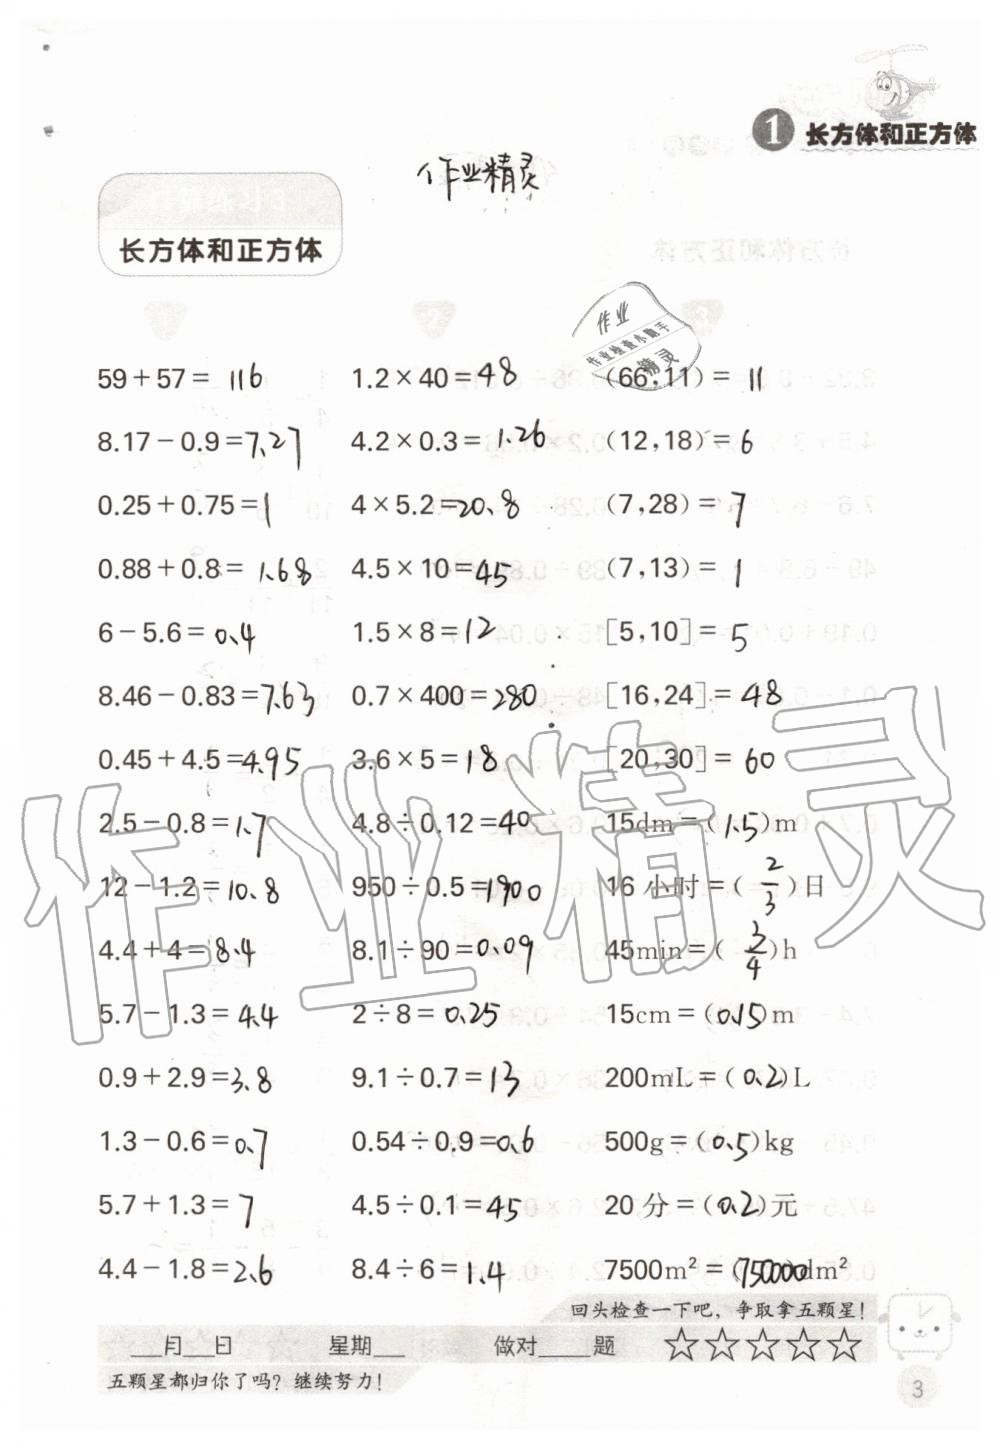 1 长方体和正方体
作业精灵
长方体和正方体
1 2 3
作业
作业检查小助手
精灵
59+57= 116 1.2×40=48 (66,11)= 11
8.17-0.9=7.27 4.2×0.3=1.26 (12,18)=6
0.25+0.75=1 4×5.2=20.8 (7,28)=7
0.88+0.8=1.68 4.5×10=45 (7,13)=1
6-5.6=0.4 1.5×8=12 [5,10]=5
8.46-0.83=7.63 0.7×400=280 [16,24]=48
0.45+4.5=4.95 3.6×5=18 [20,30]=60
2.5-0.8=1.7 4.8÷0.12=40 15dm=(1.5)m
12-1.2=10.8 950÷0.5=1900 16小时=(2/3)日
4.4+4=8.4 8.1÷90=0.09 45min=(3/4)h
5.7-1.3=4.4 2÷8=0.25 15cm=(0.15)m
0.9+2.9=3.8 9.1÷0.7=13 200mL=(0.2)L
1.3-0.6=0.7 0.54÷0.9=0.6 500g=(0.5)kg
5.7+1.3=7 4.5÷0.1=45 20分=(0.2)元
4.4-1.8=2.6 8.4÷6=1.4 7500m²=(750000)dm²
作业精灵
回头检查一下吧，争取拿五颗星！
___月___日 星期___ 做对____题 ☆☆☆☆☆
五颗星都归你了吗？继续努力！
3